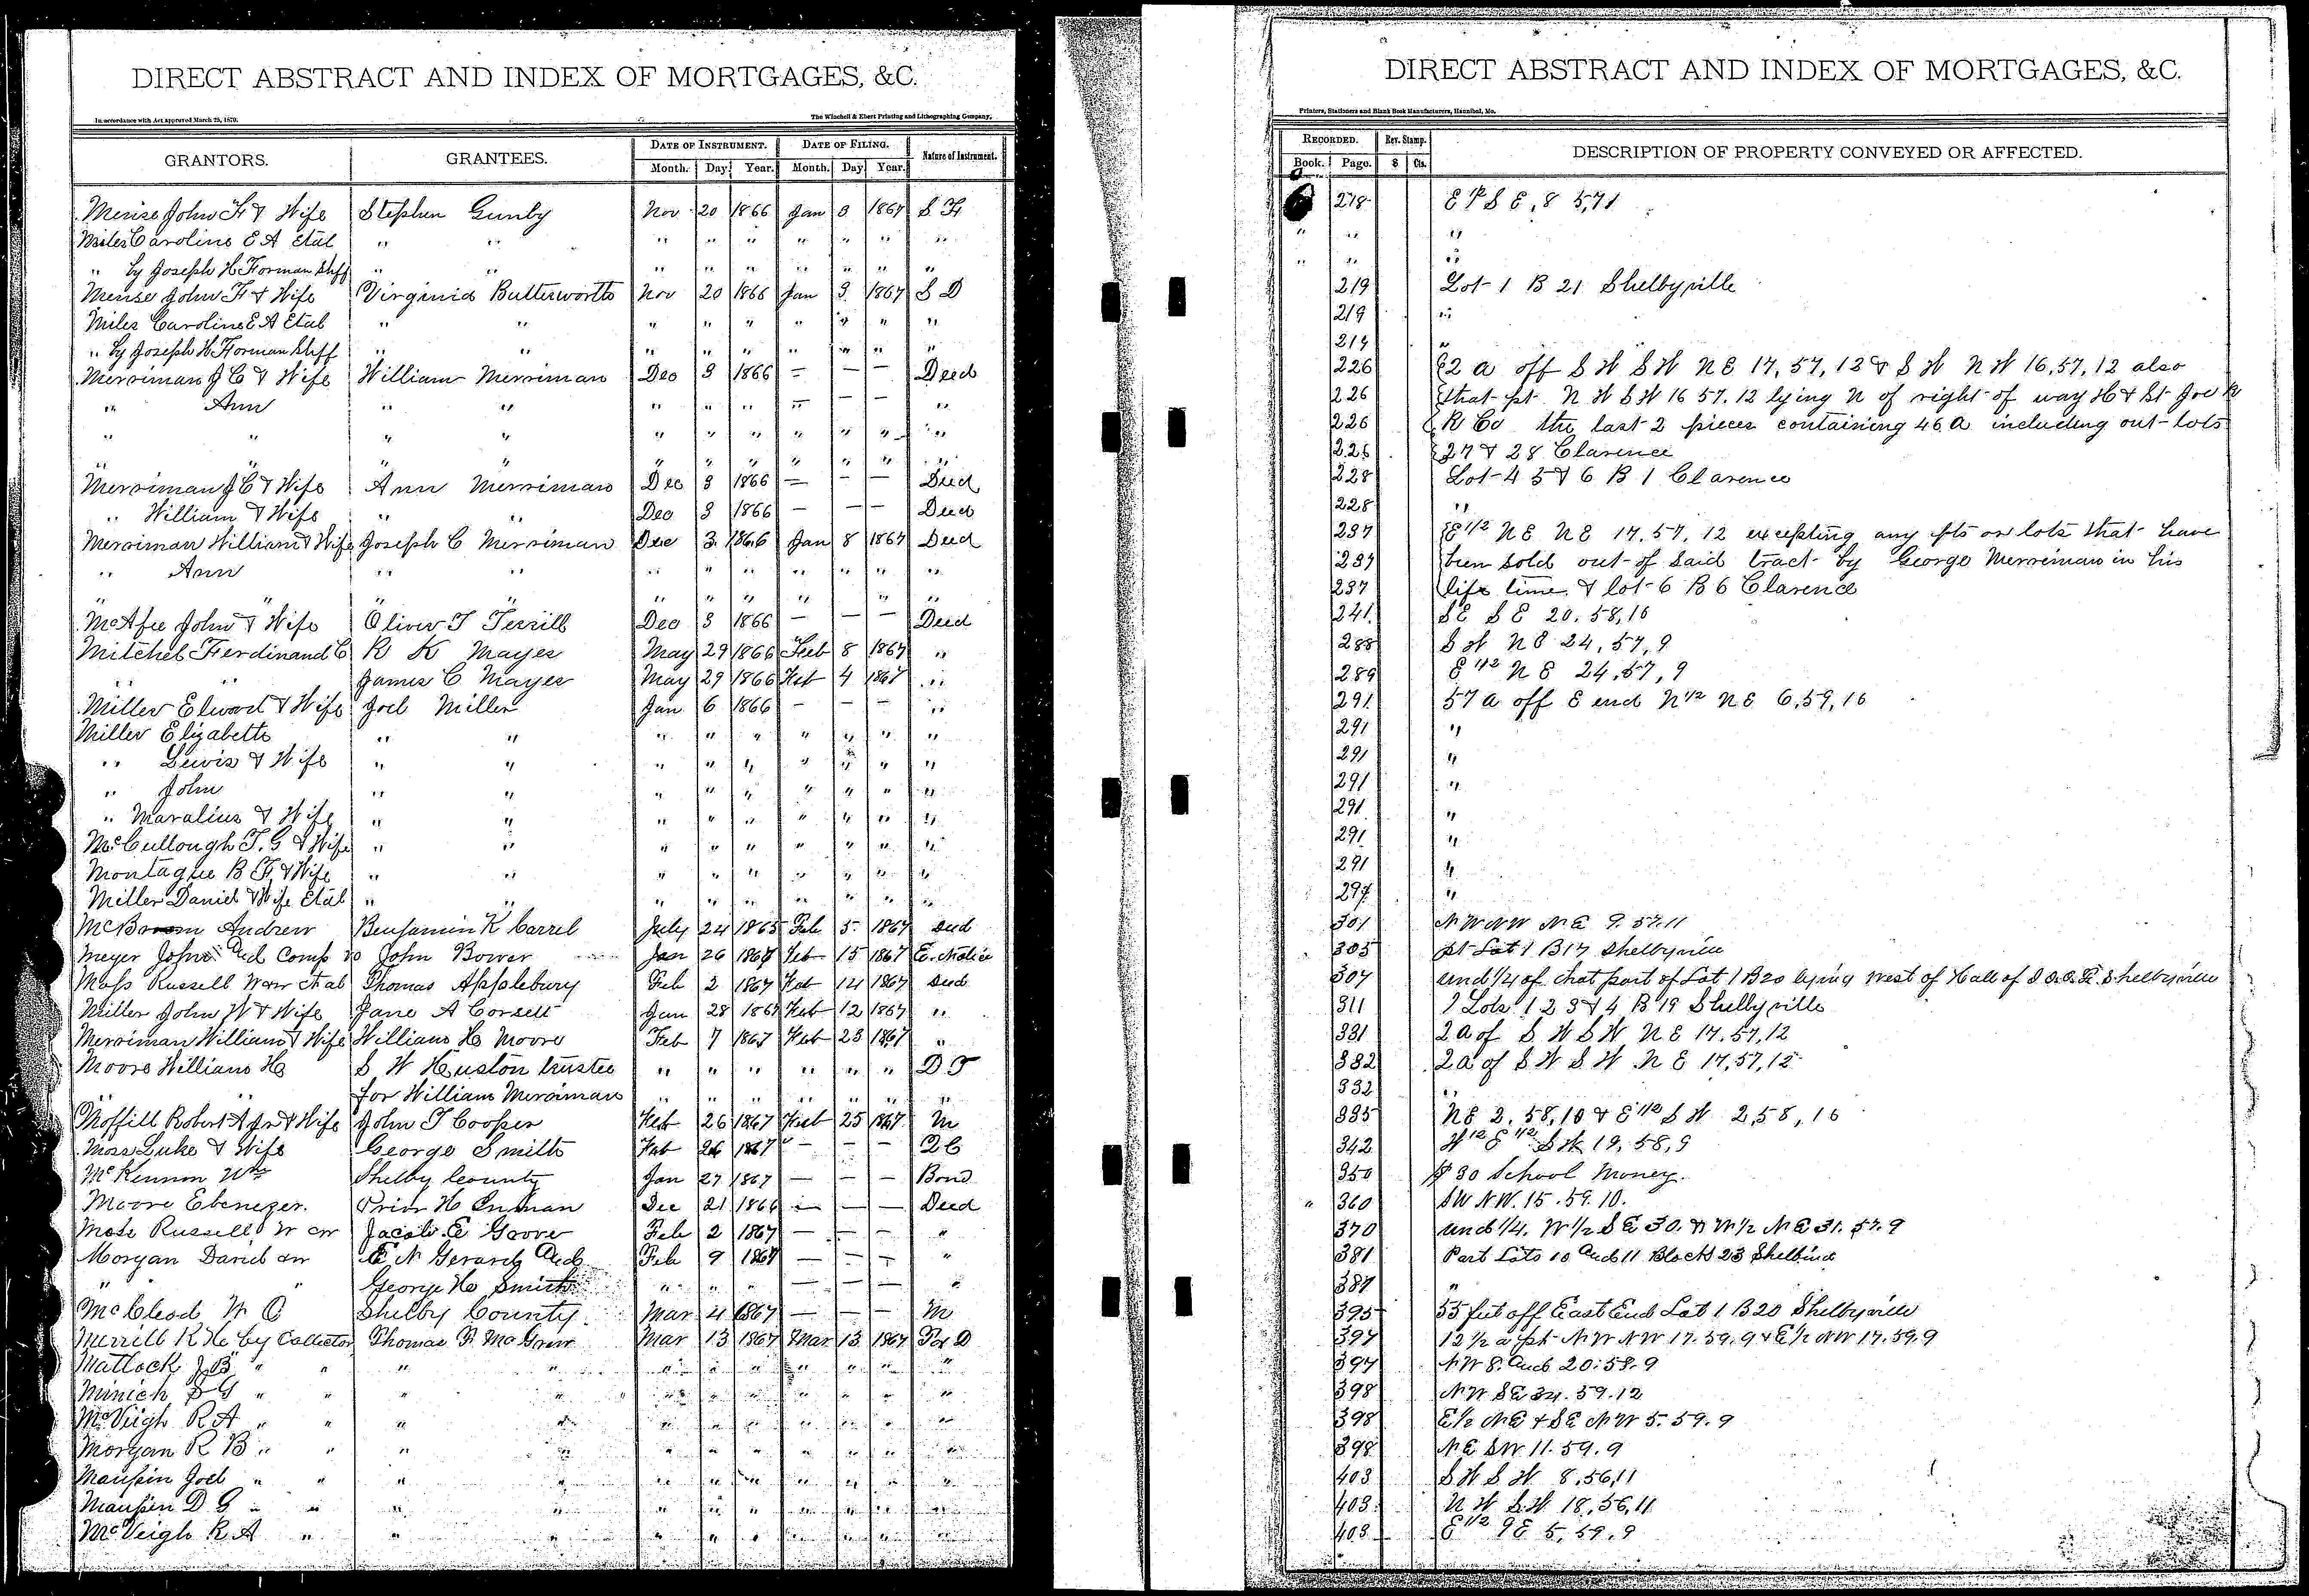 DIRECT ABSTRACT AND INDEX OF MORTGAGES, &C.
In accordance with Act approved March 25, 1879. The Winchell & Ebert Printing and Lithographing Company,
GRANTORS. GRANTEES. DATE OF INSTRUMENT. DATE OF FILING. Nature of Instrument.
Month. Day. Year. Month. Day. Year.
John F & Wife Stephen Gunby Nov 20 1866 Jan 1867
Miles Caroline E A Etal " " " " " " " " "
" by Joseph H Forman Shff " " " " " " " " "
John F & Wife Virginia Butterworth Nov 20 1866 Jan 3 1867 S D
Miles Caroline E A Etal " " " " " " " " "
" by Joseph H Forman Shff " " " " " " " " "
Merriman J C & Wife William Merriman Dec 3 1866 — — — Deed
" Ann " " " " " — — — "
" " " " " " " " " " "
" " " " " " " " " "
Merriman J C & Wife Ann Merriman Dec 3 1866 — — — Deed
" William & Wife " " Dec 3 1866 — — — Deed
Merriman William & Wife Joseph C Merriman Dec 3 1866 Jan 8 1867 Deed
" Ann " " " " " " " " "
" " " " " " " " " "
McAfee John & Wife Oliver T Terrill Dec 3 1866 — — — Deed
Mitchel Ferdinand C R K Mayes May 29 1866 Feb 8 1867 "
" " James C Mayes May 29 1866 Feb 4 1867 "
Miller Edward & Wife Joel Miller Jan 6 1866 — — — "
Miller Elizabeth " " " " " " " " "
" Lewis & Wife " " " " " " " " "
" John " " " " " " " " "
" Maralius & Wife " " " " " " " " "
McCullough T. G & Wife " " " " " " " " "
Montague B F & Wife " " " " " " " " "
Miller Daniel & Wife Etal " " " " " " " " "
Andrew Benjamin K Carrel July 24 1865 Feb 5 1867 Deed
Meyer John and Comp to John Bower Jan 26 1867 Feb 15 1867
Moss Russell W Etal Thomas Applebury Feb 2 1867 Feb 14 1867 Deed
Miller John W & Wife Jane A Corsell Jan 28 1867 Feb 12 1867 "
Merriman William & Wife William H Moore Feb 7 1867 Feb 23 1867 "
Moore William H S W Huston trustee " " " " " " D T
" " for William Merriman " " " " " " "
Robert A Jr & Wife John T Cooper Feb 26 1867 Feb 25 1867 M
Moss Luke & Wife George Smith Feb 26 1867 — — — Q C
McKennon Wm Shelby County Jan 27 1867 — — — Bond
Moore Ebenezer. Prior H Inman Dec 21 1866 — — — Deed
Russell W Jacob E Groove Feb 2 1867 — — — "
Morgan David N Gerard and Feb 9 1867 — — — "
" " George H Smith " " " — — — "
McCleod W O Shelby County Mar 4 1867 — — — M
Merrill R H by Collector Thomas P McGrew Mar 13 1867 Mar 13 1867 Tax D
Matlock J B " " " " " " " " " " "
Minich D G " " " " " " " " " " "
McVeigh R A " " " " " " " " " " "
Morgan R B " " " " " " " " " " "
Maupin Joel " " " " " " " " " " "
Maupin D G " " " " " " " " " " "
McVeigh R. A " " " " " " " " " "
DIRECT ABSTRACT AND INDEX OF MORTGAGES, &C.
Printers, Stationers and Blank Book Manufacturers, Hannibal, Mo.
RECORDED. Rev. Stamp. DESCRIPTION OF PROPERTY CONVEYED OR AFFECTED.
Book. Page. $ Cts.
218
" " "
" " "
219 Lot 1 B 21 Shelbyville
219 "
219 "
226 2 a off S W S W N E 17, 57, 12 & S W N W 16, 57, 12 also
226 that pt N W S W 16 57. 12 lying N of right of way H & St Joe R
226 R Co the last 2 pieces containing 46 a including out-lots
226 27 & 28 Clarence
228 Lot 4 5 & 6 B 1 Clarence
228 "
237 E 1/2 N E N E 17. 57. 12 excepting any pts or lots that have
237 been sold out of said tract by George Merriman in his
237 life time & lot 6 B 6 Clarence
241 S E S E 20. 58, 10
288 S W N E 24, 57, 9
289 E 1/2 N E 24, 57, 9
291 57 a off E end N 1/2 N E 6, 59, 10
291 "
291 "
291 "
291 "
291 "
291 "
291 "
301 N W N W N E 9. 57. 11
305 pt Lot 1 B 17 Shelbyville
307 und 1/4 of that part of Lot 1 B 20 lying West of Hall of I. O. O. F. Shelbyville
311 Lots 1 2 3 & 4 B 19 Shelbyville
331 2 a of S W S W N E 17. 57, 12
332 2 a of S W S W N E 17, 57, 12
332 "
335 N E 2, 58, 10 & E 1/2 S W 2, 58, 10
342 W 1/2 E 1/2 S W 19, 58, 9
350 $ 30 School Money.
" 360 S W N W. 15. 59. 10.
370 und 1/4. W 1/2 S E 30. & W 1/2 N E 31. 57. 9
381 Part Lots 10 and 11 Block 23 Shelbina
381 "
395 55 feet off East End Lot 1 B 20 Shelbyville
397 12 1/2 a pt N W N W 17. 59. 9 & E 1/2 N W 17. 59. 9
397 N W 8. and 20. 58. 9
398 N W S E 34. 59. 12
398 E 1/2 N E & S E N W 5. 59. 9
398 N E S W 11. 59. 9
403 S W S W 8, 56, 11
403 N W S W 18, 56, 11
403 E 1/2 5, 59, 9